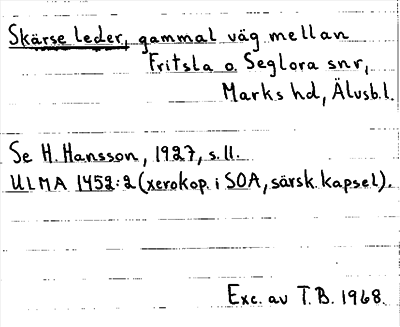 Skärse leder, gammal väg mellan
Fritsla o. Seglora snr,
Marks hd, Älvsb.l.
Se H. Hansson, 1927, s. 11.
ULMA 1452:2 (xerokop. i SOA, särsk. kapsel).
Exc. av T.B. 1968.